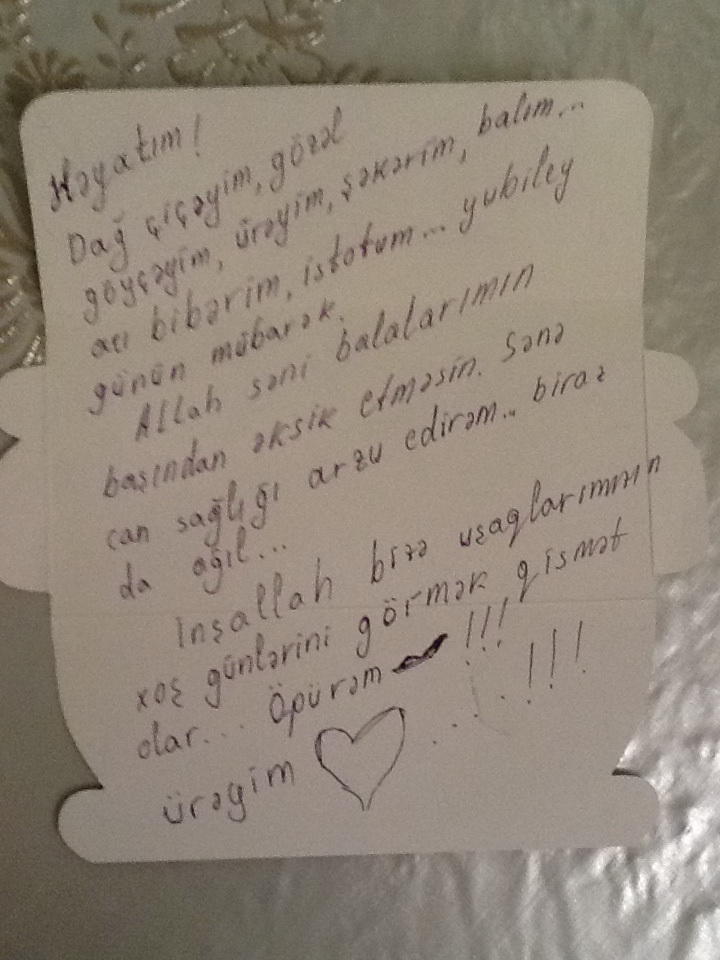 Həyatım!
Dağ çiçəyim, gözəl
göyçəyim, ürəyim, şəkərim, balım...
acı bibərim, istotum... yubiley
günün mübarək.
Allah səni balalarımın
başından əksik etməsin. Sənə
can sağlığı arzu edirəm... biraz
da ağıl...
Inşallah bizə uşaqlarımızın
xoş günlərini görmək qismət
olar... Öpürəm !!!
ürəgim ....!!!